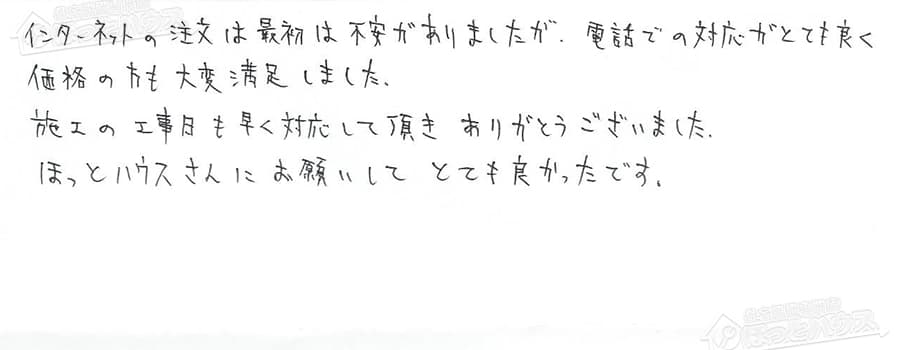 インターネットの注文は最初は不安がありましたが、電話での対応がとても良く
価格の方も大変満足しました。
施工の工事日も早く対応して頂き ありがとうございました。
ほっとハウスさんにお願いして とても良かったです。
ほっとハウス